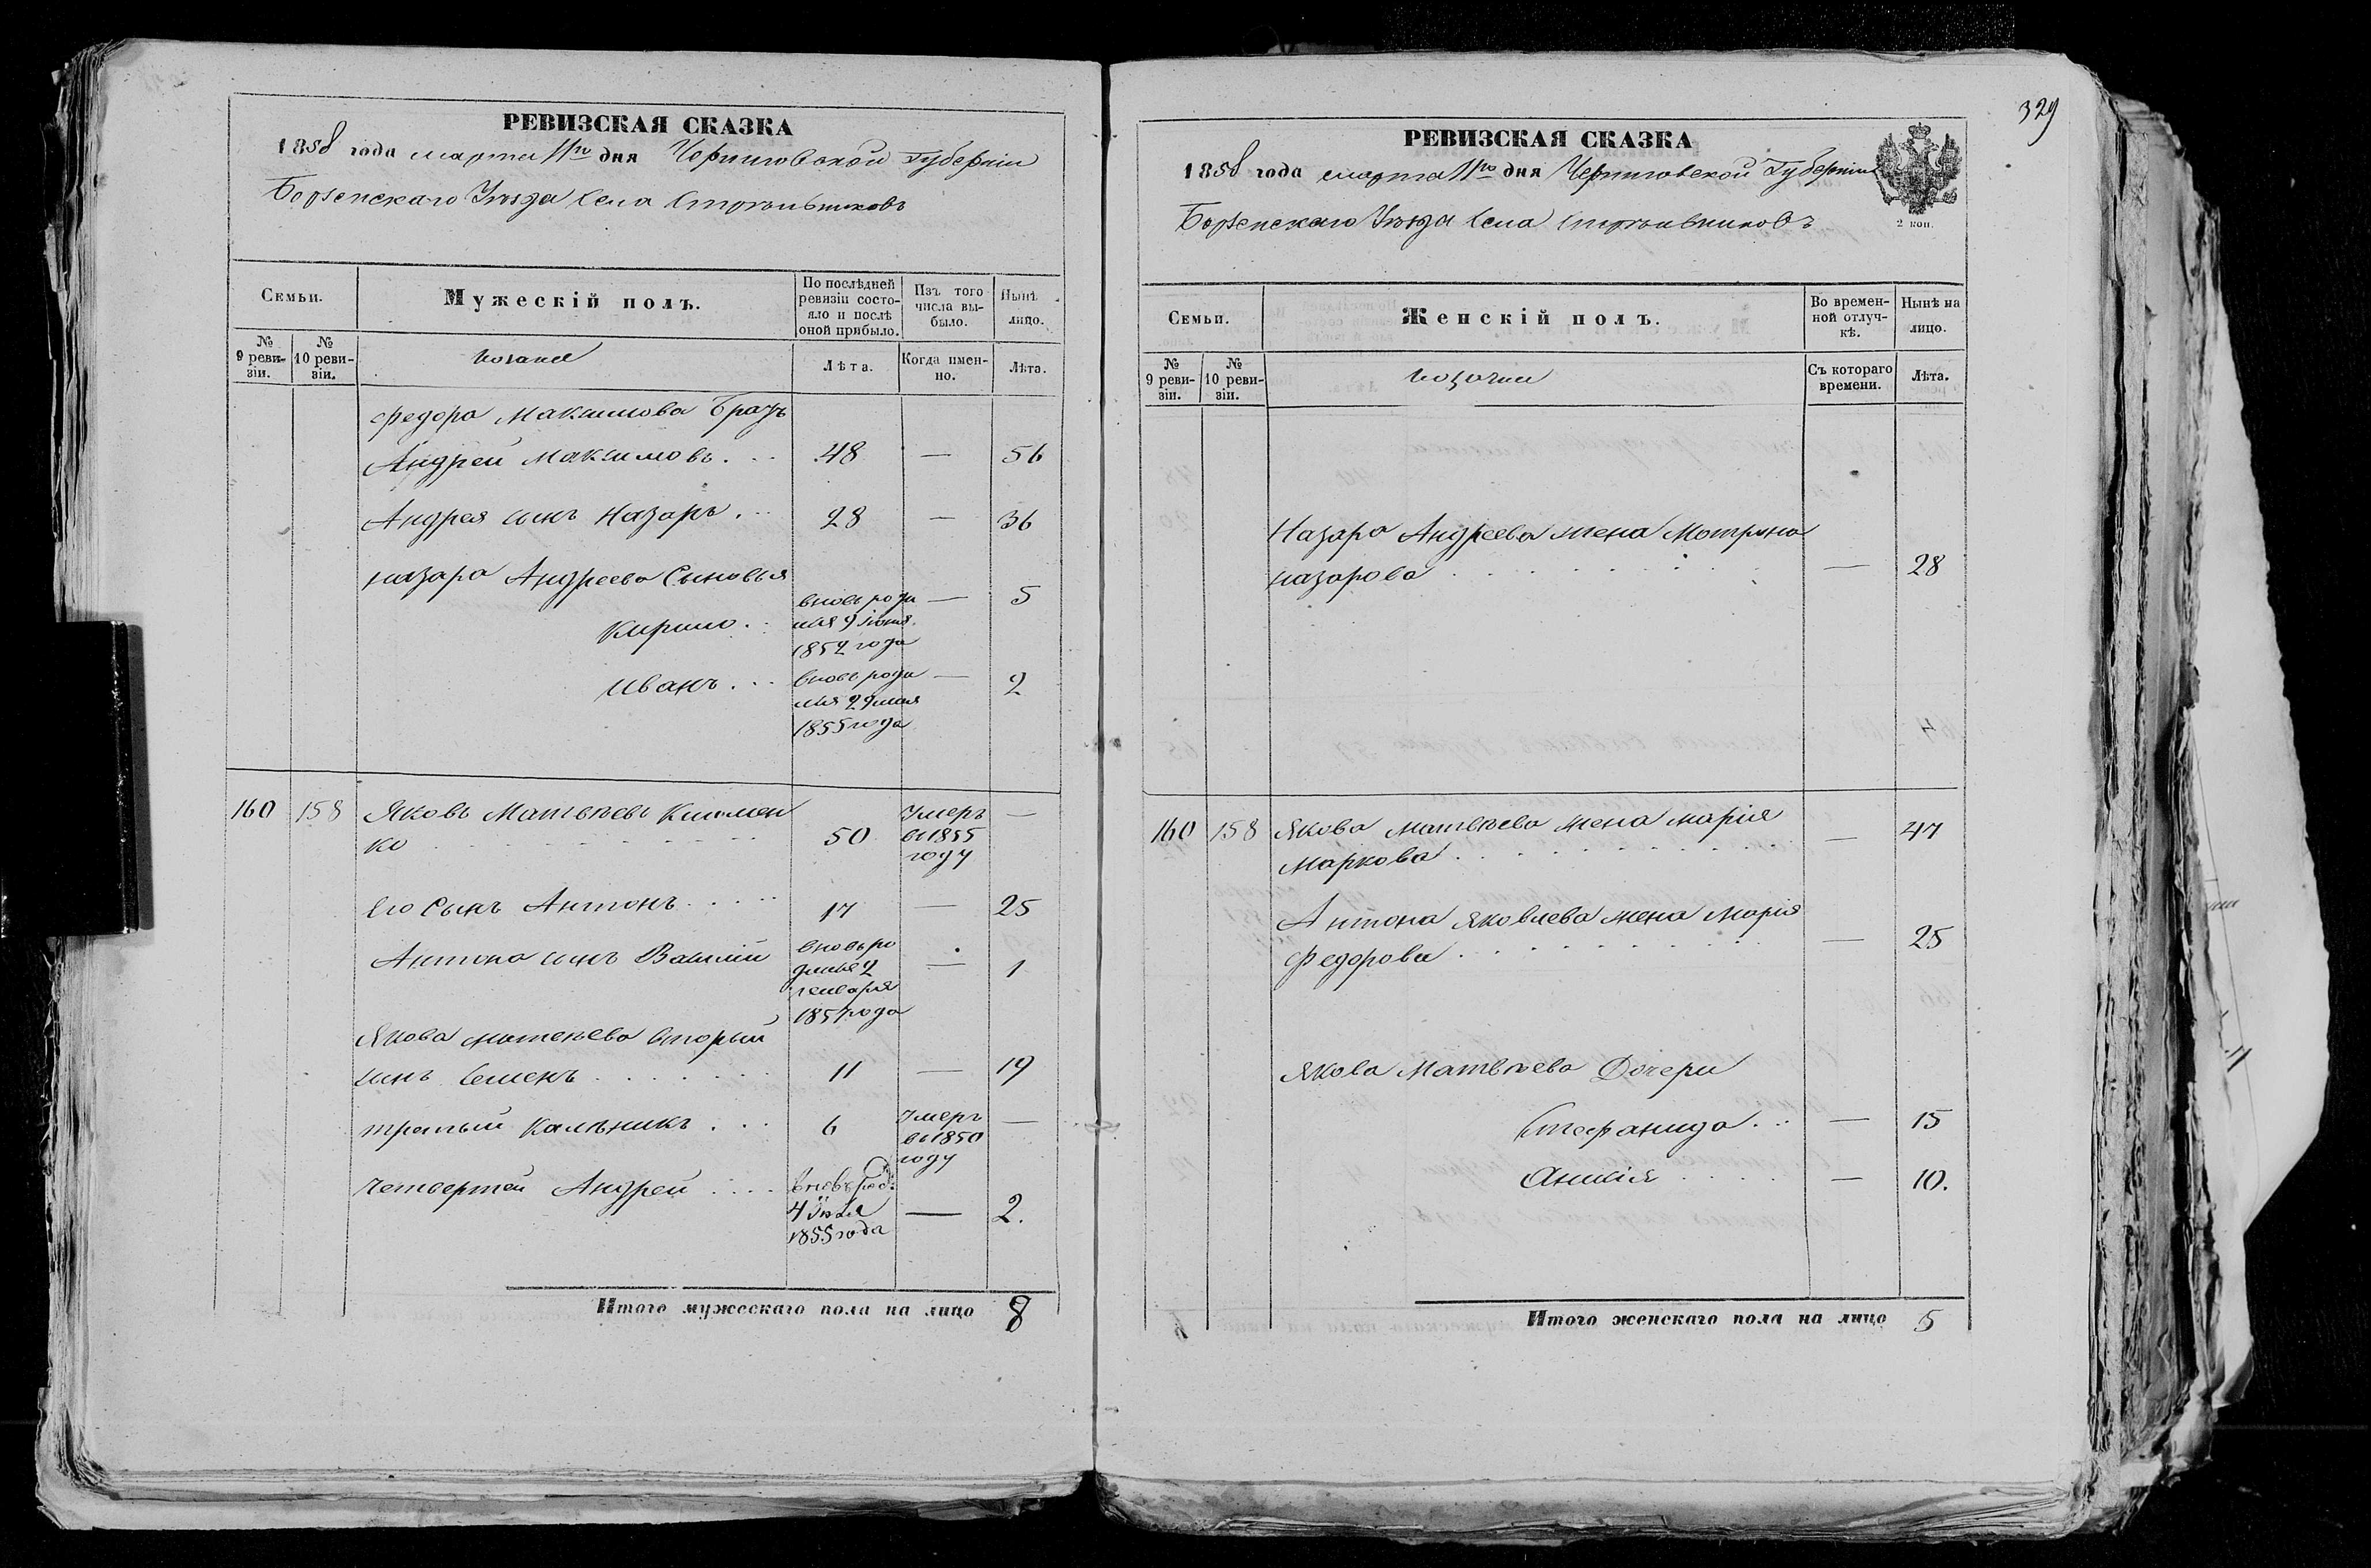 РЕВИЗСКАЯ СКАЗКА
1858 года марта 11го дня Черниговской Губерніи
Борзенскаго Уѣзда Села Стрѣльниковъ
Семьи.
Мужескій полъ.
По послѣдней ревизіи состояло и послѣ оной прибыло.
Изъ того числа выбыло.
Нынѣ на лицо.
№ 9 ревизіи.
№ 10 ревизіи.
козаки
Лѣта.
Когда именно.
Лѣта.
Федора Максимова Братъ
Андрей Максимовъ . . . 48 — 56
Андрея сынъ Назаръ . . . 28 — 36
назара Андреева Сыновья
Кирило . . вновь родился 9 іюня 1852 года — 5
Иванъ . . . вновь родился 29 мая 1855 года — 2
160 158 Яковъ Матвѣевъ Клименко 50 Умеръ въ 1855 году —
его Сынъ Антонъ . . . . 17 — 25
Антона сынъ Василій вновь родился 2 генваря 1857 года — 1
Якова матвѣева вторый
сынъ Семенъ . . . . . . 11 — 19
третый Калѣникъ . . . 6 Умеръ въ 1850 году —
четвертый Андрей . . . . вновь род. 4 Іюля 1855 года — 2.
Итого мужескаго пола на лицо 8
329
РЕВИЗСКАЯ СКАЗКА
1858 года марта 11го дня Черниговской Губерніи
Борзенскаго Уѣзда Села Стрѣльниковъ
2 коп.
Семьи.
Женскій полъ.
Во временной отлучкѣ.
Нынѣ на лицо.
№ 9 ревизіи.
№ 10 ревизіи.
козачки
Съ котораго времени.
Лѣта.
Назара Андреева жена Мотрона
назарова . . . . . . . — 28
160 158 Якова матвѣева жена марія
Маркова . . . . . . . — 47
Антона яковлева жена Марія
Федорова . . . . . . . — 25
Якова Матвѣева Дочери
Стефанида . . . — 15
. . . . — 10.
Итого женскаго пола на лицо 5